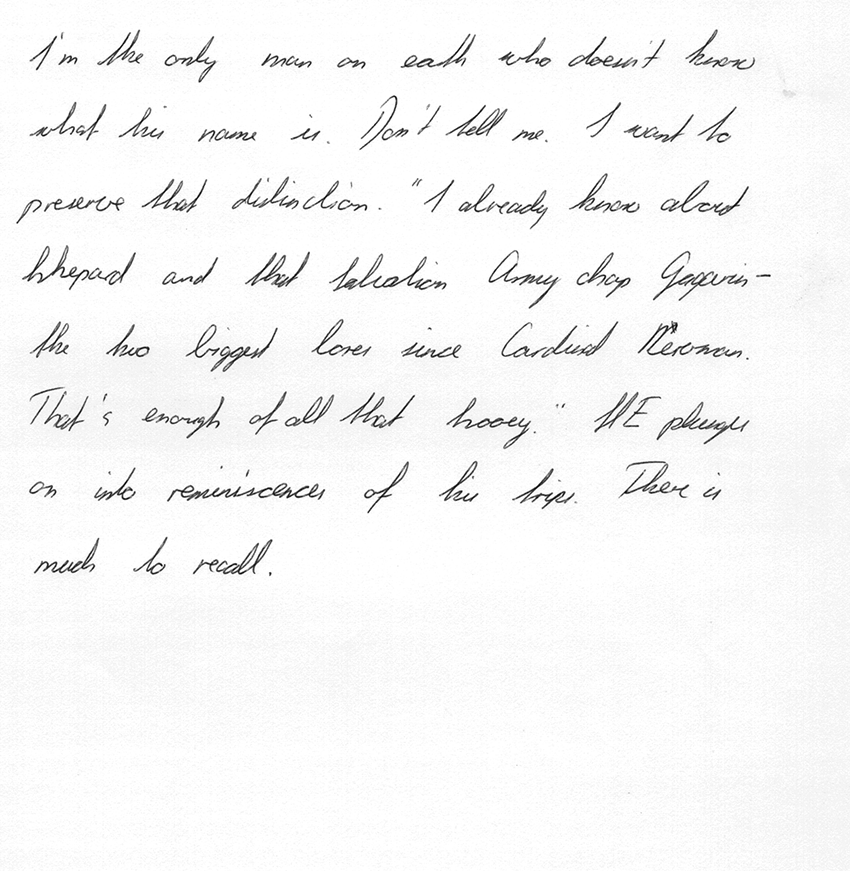 I'm the only man on earth who doesn't know
what his name is. Don't tell me. I want to
preserve that distinction. "I already know about
Shepard and that Salvation Army chap Gagarin-
the two biggest bores since Cardinal Newman.
That's enough of all that hooey." HE plunges
on into reminiscences of his trips. There is
much to recall.